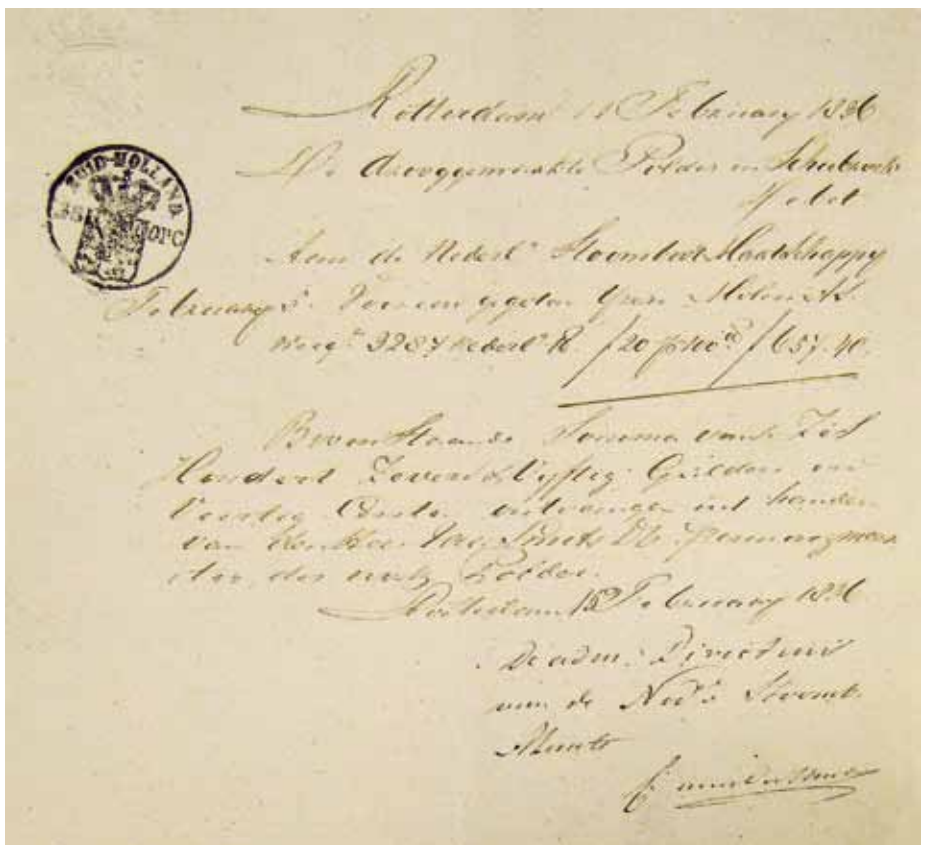 ZUID-HOLLAND
Rotterdam 11 February 1836
De drooggemaakte Polder in Schiebroek
debet
Aan de Nederl<sup>e</sup> Stoomboot Maatschappy
February 5. Voor een gegoten Yzere Molen
3287 Nederl<sup>e</sup> ℔ ƒ20 p 100 ƒ657.40.
Bovenstaande Somma van Zes
Hondert Zeven & Vyftig Gulden en
Veertig Cents ontvangen uit handen
van den Heer Smits Penningmees
ter der Polder.
Rotterdam 15 February 1836
De adm. Directeur
van de Ned. Stoomb.
Maats